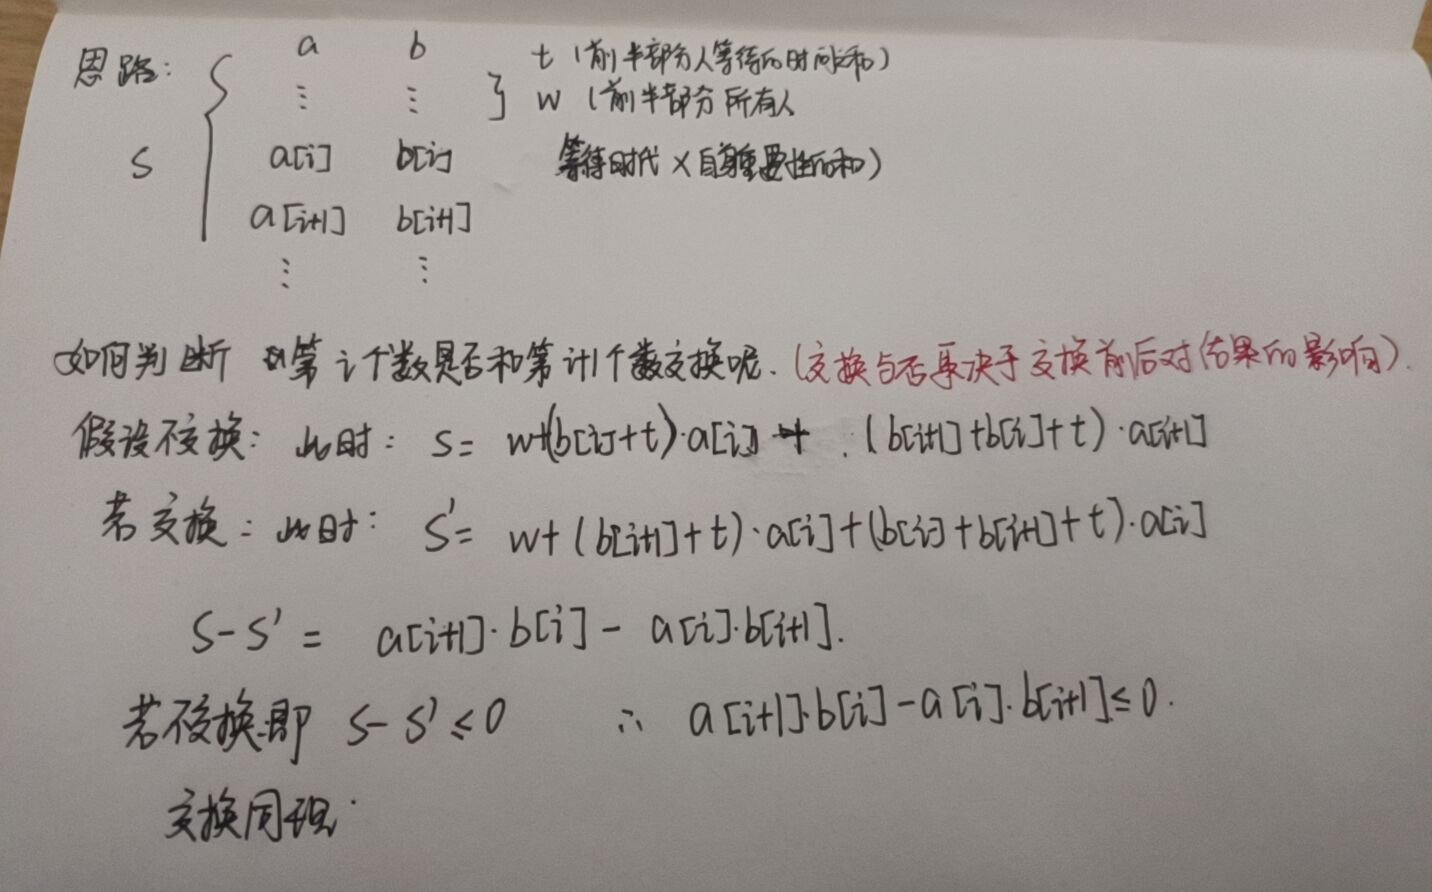 思路:
a b t (前半部分人等待的时间之和)
⋮ ⋮ w (前半部分所有人
S a[i] b[i] 等待时代×自身重要性的和)
a[i+1] b[i+1]
⋮ ⋮
如何判断 第i个数是否和第i+1个数交换呢.(交换与否取决于交换前后对结果的影响).
假设不交换: 此时: S= w+(b[i]+t)·a[i] + (b[i+1]+b[i]+t)·a[i+1]
若交换: 此时: S'= w+(b[i+1]+t)·a[i]+(b[i]+b[i+1]+t)·a[i]
S-S' = a[i+1]·b[i] - a[i]·b[i+1].
若不交换.即 S-S'≤0 ∴ a[i+1]·b[i]-a[i]·b[i+1]≤0.
交换同理.